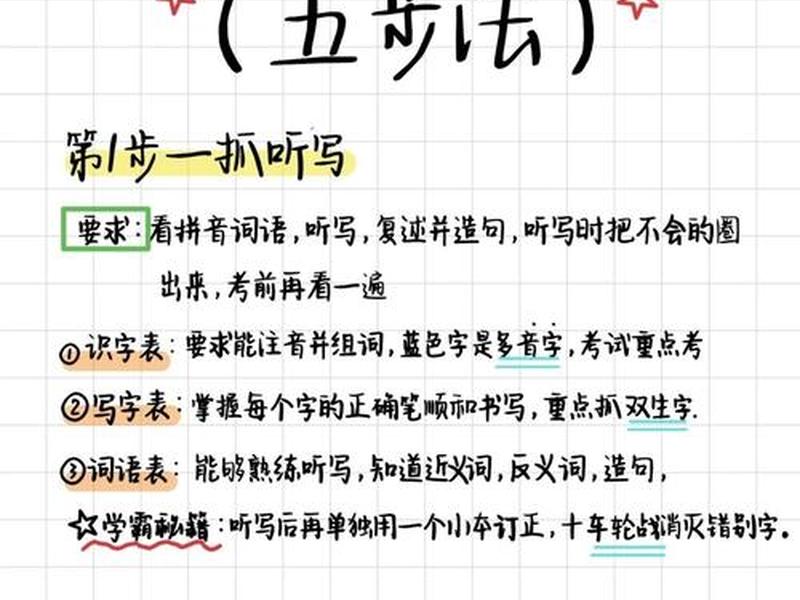 （五步法）
第1步一抓听写
要求：看拼音词语,听写,复述并造句,听写时把不会的圈
出来,考前再看一遍
①识字表：要求能注音并组词,蓝色字是多音字,考试重点考
②写字表：掌握每个字的正确笔顺和书写,重点抓双生字.
③词语表：能够熟练听写,知道近义词,反义词,造句,
☆学霸秘籍：听写后再单独用一个小本订正,十车轮战消灭错别字。